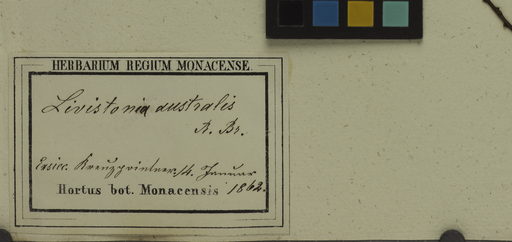 HERBARIUM REGIUM MONACENSE.
Livistonia australis
R. Br.
Exsicc. Kreuzpointner. 14. Januar
Hortus bot. Monacensis 1862.